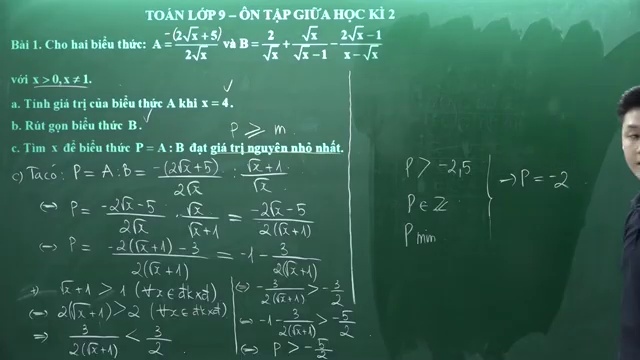 TOÁN LỚP 9 – ÔN TẬP GIỮA HỌC KÌ 2
Bài 1. Cho hai biểu thức: A = -(2√x+5)/(2√x) và B = 2/√x + √x/(√x-1) - (2√x-1)/(x-√x)
với x > 0, x ≠ 1.
a. Tính giá trị của biểu thức A khi x = 4. ✓
b. Rút gọn biểu thức B. ✓
P ⩾ m
c. Tìm x để biểu thức P = A : B đạt giá trị nguyên nhỏ nhất.
c) Ta có: P = A : B = -(2√x+5)/(2√x) : (√x+1)/√x
⇔ P = (-2√x-5)/(2√x) . √x/(√x+1) = (-2√x-5)/(2(√x+1))
⇔ P = (-2(√x+1)-3)/(2(√x+1)) = -1 - 3/(2(√x+1))
+) √x+1 > 1 (∀x ∈ đkxđ)
⇔ 2(√x+1) > 2 (∀x ∈ đkxđ)
⇒ 3/(2(√x+1)) < 3/2
⇔ -3/(2(√x+1)) > -3/2
⇔ -1 - 3/(2(√x+1)) > -5/2
⇔ P > -5/2
P > -2,5
P ∈ ℤ
P min
→ P = -2